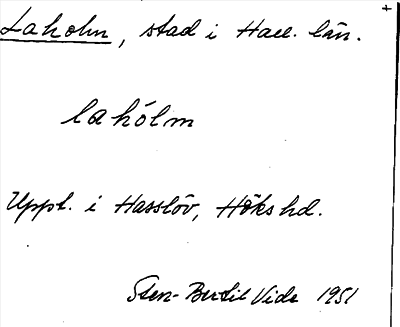 Laholm, stad i Hall. län.
lahólm
Uppt. i Hasslöv, Höks hd.
Sten-Bertil Vide 1951